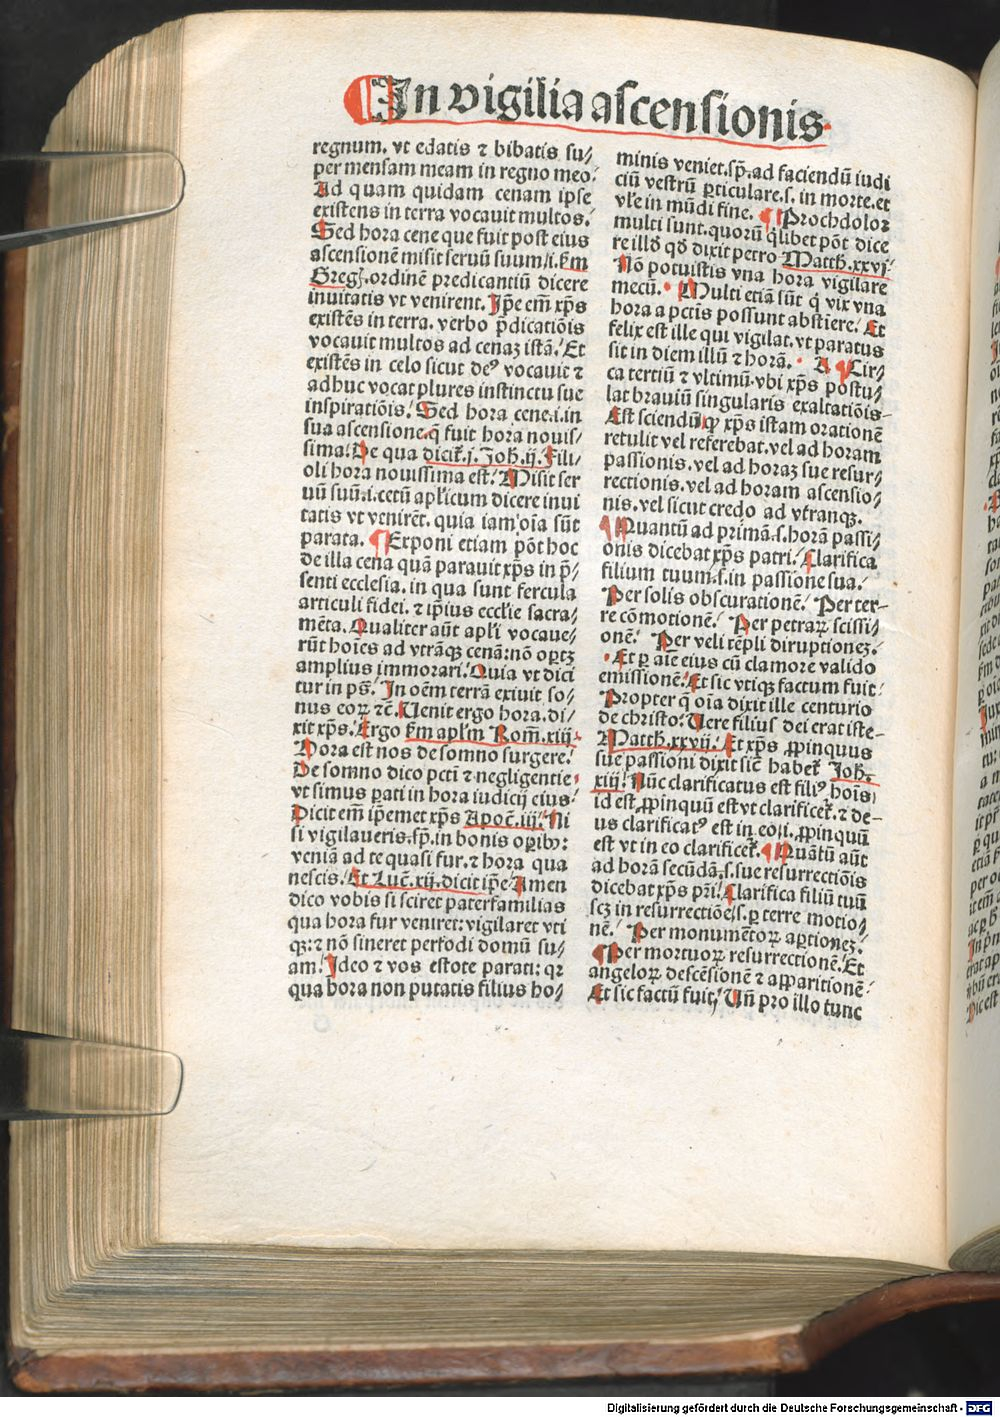 In vigilia ascensionis
regnum. vt edatis ⁊ bibatis su/
per mensam meam in regno meo.
Ad quam quidam cenam ipse
existens in terra vocauit multos.
Sed hora cene que fuit post eius
ascensionē misit seruū suum/i. ẜm
Greg. ordinē predicantiū dicere
inuitatis vt venirent. Ipse em̄ xp̄s
existēs in terra. verbo p̄dicatiōis
vocauit multos ad cenaꝫ istā. Et
existēs in celo sicut deꝰ vocauit ⁊
adhuc vocat plures instinctu sue
inspiratiōis. Sed hora cene.i.in
sua ascensione.q̄ fuit hora nouis/
sima. De qua dicit̄.j.Joh.ij. Fili-
oli hora nouissima est. Misit ser
uū suū.i.cetū apl̄icum dicere inui
tatis vt venirēt. quia iam oīa sūt
parata. ¶ Exponi etiam pōt hoc
de illa cena quā parauit xp̄s in p̄/
senti ecclesia. in qua sunt fercula
articuli fidei. ⁊ ip̄ius eccl̄ie sacra/
mēta. Qualiter aūt apl̄i vocaue/
rūt hoīes ad vtrāqꝫ cenā: nō oꝑtꝫ
amplius immorari. Quia vt dici
tur in ps̄. In oēm terrā exiuit so/
nus eoꝝ ⁊c̄. Uenit ergo hora. di/
xit xp̄s. Ergo ẜm apl̄m Rom̄.xiij.
Hora est nos de somno surgere.
De somno dico pctī ⁊ negligentie.
vt simus ꝑati in hora iudicij eius.
Dicit em̄ ip̄emet xp̄s Apoc̄.iij. Ni
si vigilaueris.sp̄.in bonis oꝑibꝰ:
veniā ad te quasi fur. ⁊ hora qua
nescis. Et Luc̄.xij.dicit ip̄e Amen
dico vobis si sciret paterfamilias
qua hora fur veniret: vigilaret vti
qꝫ: ⁊ nō sineret perfodi domū su/
am. Ideo ⁊ vos estote parati: qꝛ
qua hora non putatis filius ho/
minis veniet.sp̄.ad faciendū iudi
ciū vestrū ꝑticulare.s. in morte. et
vl̄e in mūdi fine. ¶ Prochdolor
multi sunt. quorū q̄libet pōt dice
re illd̄ qd̄ dixit petro Matth.xxvj.
Nō potuistis vna hora vigilare
mecū. Multi etiā sūt q̄ vix vna
hora a pctīs possunt abstīere. Et
felix est ille qui vigilat. vt paratus
sit in diem illū ⁊ horā. ¶ Cir/
ca tertiū ⁊ vltimū. vbi xp̄s postu/
lat brauiū singularis exaltatiōis.
Est sciendū ꝙ xp̄s istam orationē
retulit vel referebat. vel ad horam
passionis. vel ad horaꝫ sue resur/
rectionis. vel ad horam ascensio/
nis. vel sicut credo ad vtranqꝫ.
¶ Quantū ad primā.s.horā passi/
onis dicebat xp̄s patri. Clarifica
filium tuum.s.in passione sua.
Per solis obscurationē. Per ter-
re cōmotionē. Per petraꝝ scissi/
onē. Per veli tēpli diruptioneꝫ.
Et ꝑ aīe eius cū clamore valido
emissionē. Et sic vtiqꝫ factum fuit.
Propter q̄ oīa dixit ille centurio
de christo. Uere filius dei erat iste.
Matth.xxvij. Et xp̄s ꝓpinquus
sue passioni dixit sic̄ habet̄ Joh.
xiij. Nūc clarificatus est filiꝰ hoīs
id est ꝓpinquū est vt clarificet̄. ⁊ de-
us clarificatꝰ est in eo/i. ꝓpinquū
est vt in eo clarificet̄. ¶ Quātū aūt
ad horā secūdā.s.sue resurrectiōis
dicebat xp̄s pr̄i. Clarifica filiū tuū
scꝫ in resurrectiōe/s. ꝑ terre motio/
nē. Per monumētoꝝ aꝑtioneꝫ.
Per mortuoꝝ resurrectionē. Et
angeloꝝ descēsionē ⁊ apparitionē.
Et sic factū fuit. Un̄ pro illo tunc
Digitalisierung gefördert durch die Deutsche Forschungsgemeinschaft - DFG